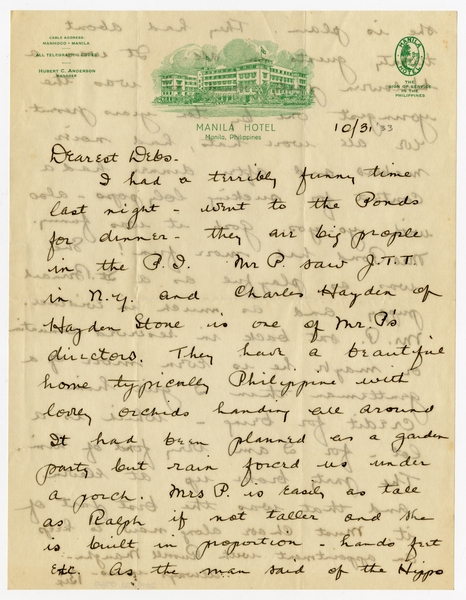 CABLE ADDRESS:
MANHOCO - MANILA
ALL TELEGRAPHIC CODES
HUBERT C. ANDERSON
MANAGER
MANILA HOTEL
MANILA HOTEL
Manila, Philippines
THE
SIGN OF SERVICE
IN THE
PHILIPPINES
10/31 33
Dearest Debs-
I had a terribly funny time
last night - went to the Ponds
for dinner - they are big people
in the P.I. Mr P. saw J.T.T.
in N.Y. and Charles Hayden of
Hayden Stone is one of Mr. P's
directors. They have a beautiful
home typically Philippine with
lovely orchids handing all around
It had been planned as a garden
party but rain forced us under
a porch. Mrs P. is easily as tall
as Ralph if not taller and she
is built in proportion - hands feet
Etc. As the man said of the Hippo